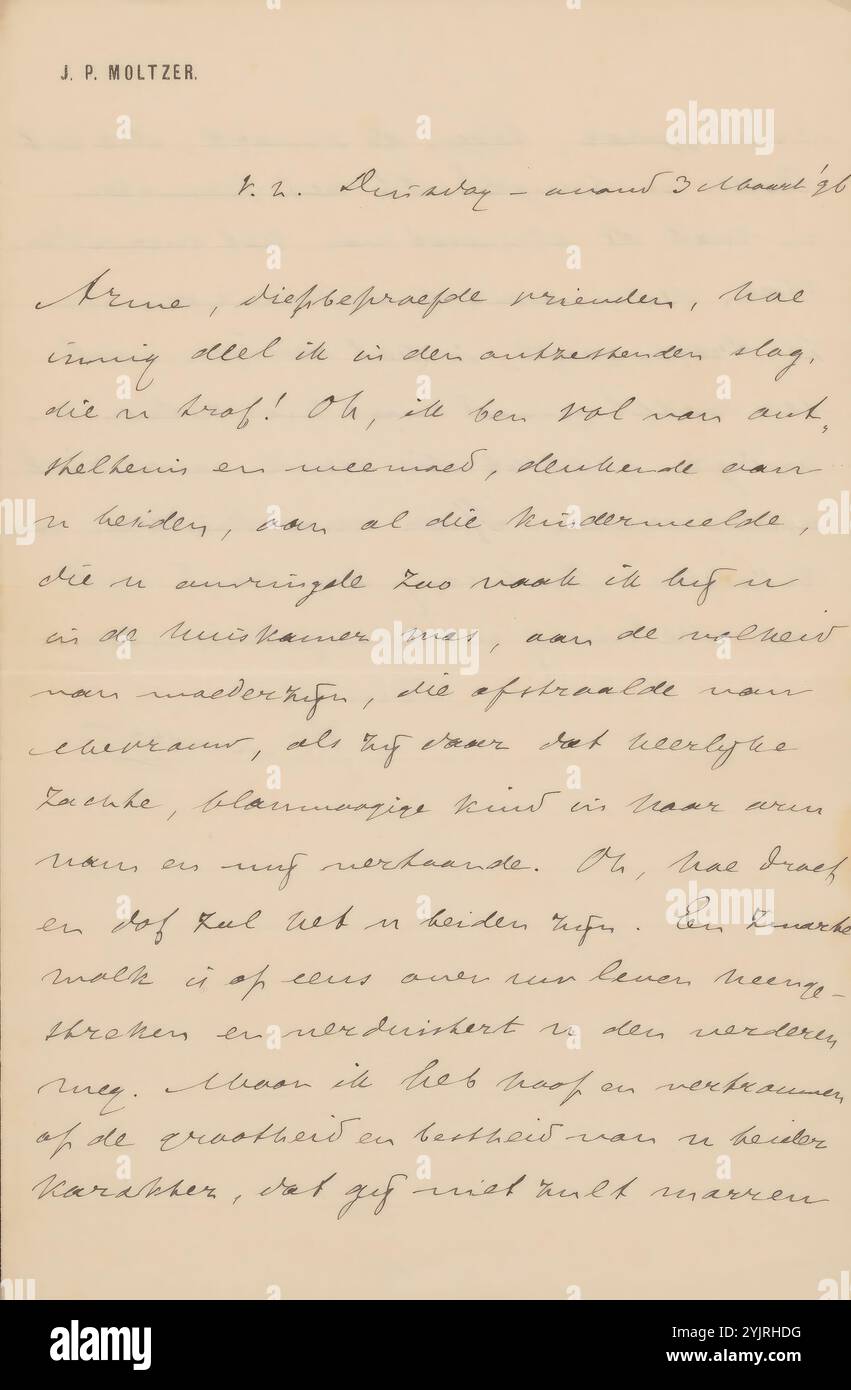 J. P. MOLTZER.
v. h. Dinsdag - avond 3 Maart '96
Arme, diepbeproefde vrienden, hoe
innig deel ik in den ontzettenden slag,
die u trof! Oh, ik ben vol van ont„
steltenis en weemoed, denkende aan
u beiden, aan al die kinderweelde,
die u omringde zoo vaak ik bij u
in de huiskamer was, aan de volheid
van moederzijn, die afstraalde van
Mevrouw, als zij daar dat heerlijke
zachte, blauwoogige kind in haar arm
nam en mij vertoonde. Oh, hoe droef
en dof zal het u beiden zijn. Een zwarte
wolk is op eens over uw leven heenge-
streken en verduistert u den verderen
weg. Maar ik heb hoop en vertrouwen
op de grootheid en bestheid van u beider
karakter, dat gij niet zult marren
alamy
Image ID: 2YJRHDG
www.alamy.com